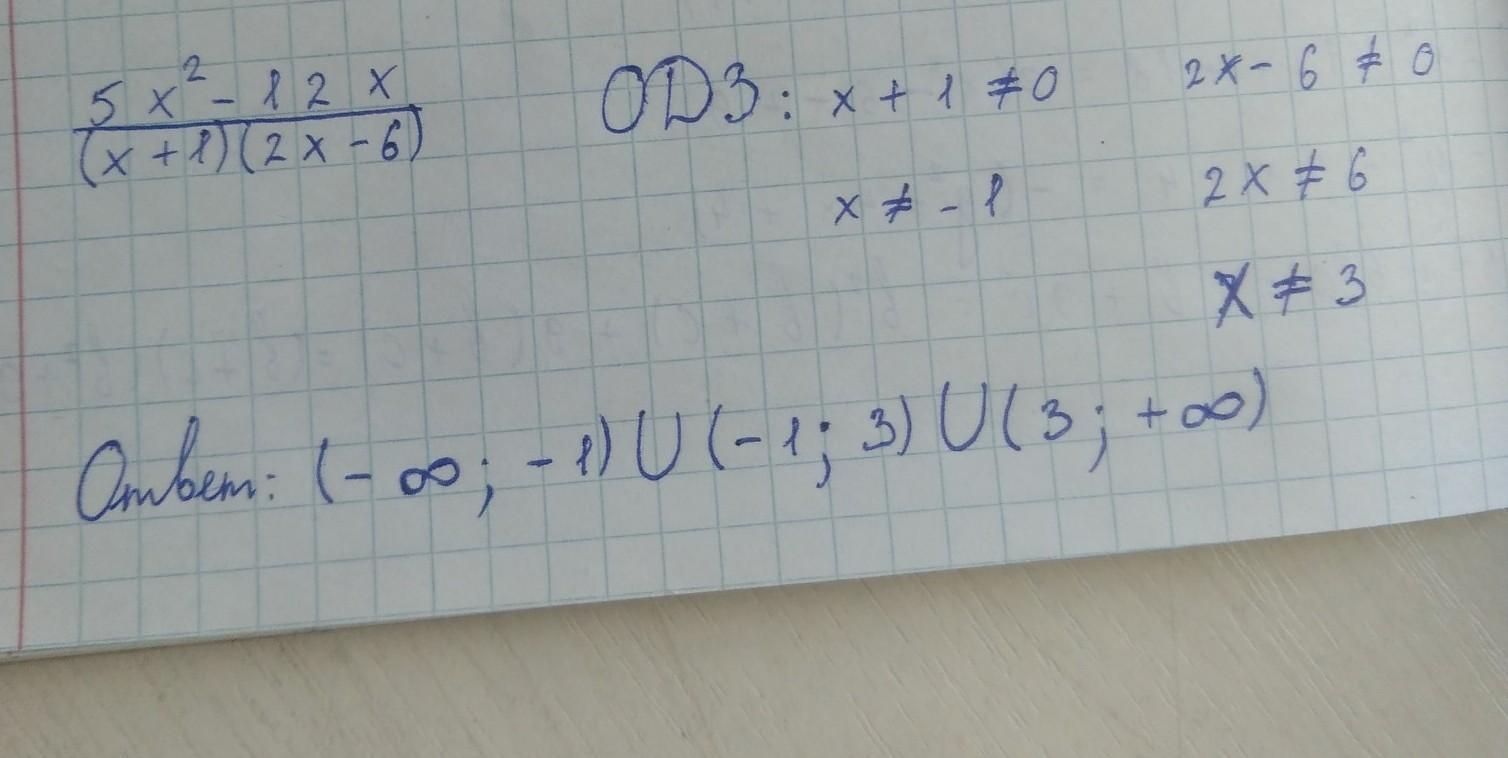 5x² - 12x / (x+1)(2x-6) ОДЗ: x + 1 ≠ 0 2x - 6 ≠ 0
x ≠ -1 2x ≠ 6
x ≠ 3
Ответ: (-∞; -1) ∪ (-1; 3) ∪ (3; +∞)